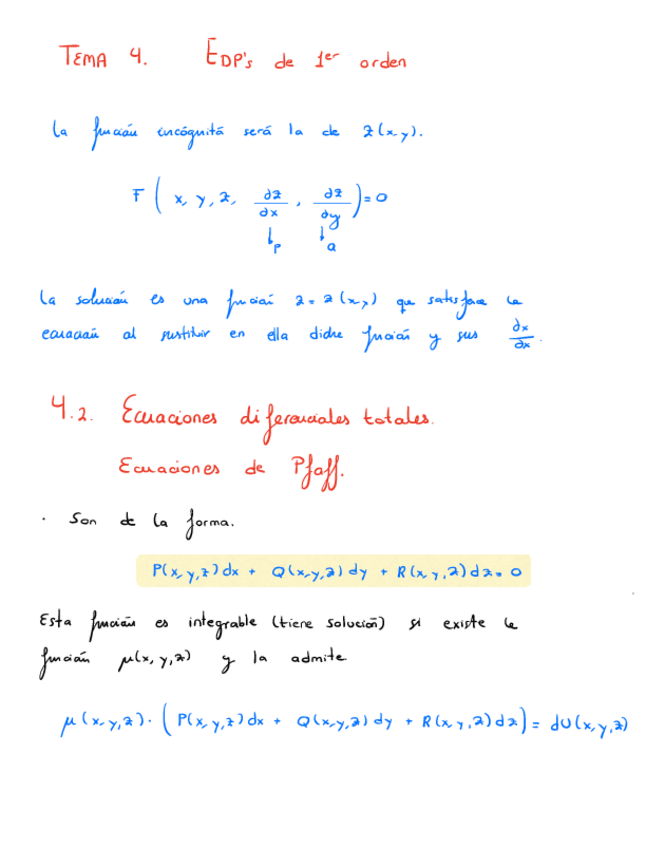 TEMA 4. EDP's de 1er orden
La función incógnita será la de z(x,y).
F ( x, y, z, ∂z/∂x , ∂z/∂y ) = 0
↓p ↓q
La solución es una función z = z(x,y) que satisface la
ecuación al sustituir en ella dicha función y sus ∂x/∂x.
4.2. Ecuaciones diferenciales totales.
Ecuaciones de Pfaff.
· Son de la forma.
P(x,y,z)dx + Q(x,y,z)dy + R(x,y,z)dz = 0
Esta función es integrable (tiene solución) si existe la
función μ(x,y,z) y la admite
μ(x,y,z) · ( P(x,y,z)dx + Q(x,y,z)dy + R(x,y,z)dz ) = dU(x,y,z)